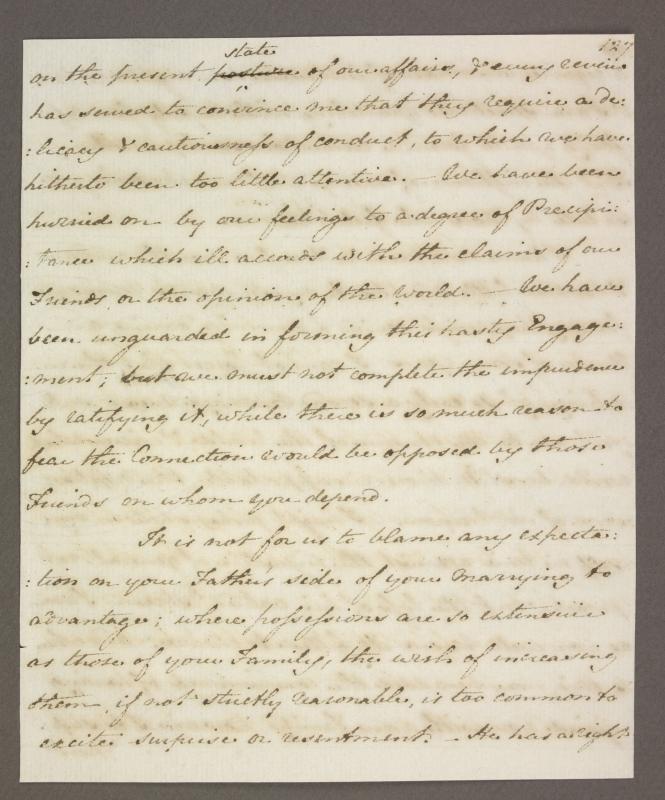 127
state
on the present posture of our affairs, & every review
has served to convince me that they require a de:
:licacy & cautiousness of conduct, to which we have
hitherto been too little attentive. — We have been
hurried on by our feelings to a degree of Precipi:
:tance which ill accords with the claims of our
Friends or the opinion of the World. — We have
been unguarded in forming this hasty Engage:
:ment; but we must not complete the imprudence
by ratifying it, while there is so much reason to
fear the Connection would be opposed by those
Friends on whom you depend.
It is not for us to blame any expecta:
:tion on your Father's side of your marrying to
advantage; where possessions are so extensive
as those of your Family, the wish of increasing
them, if not strictly reasonable, is too common to
excite surprise or resentment. — He has a right